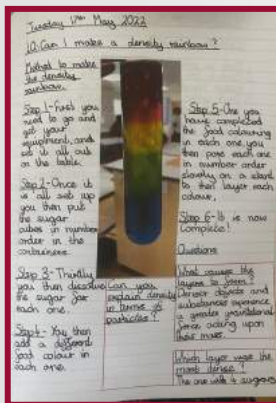 Tuesday 17th May 2022
LO: Can I make a density rainbow?
Method to make
the density
rainbow.
Step 1- First you
need to go and
get your
equipment, and
set it all out
on the table.
Step 2- Once it
is all set up
you then put
the sugar
cubes in number
order in the
containers.
Step 3- Thirdly
you then dissolve
the sugar for
each one.
Step 4- You then
add a different
food colour in
each one.
Can you
explain density
in terms of
particles?
Step 5- One you
have completed
the food colouring
in each one you
then pore each one
in number order
slowly on a slant
to then layer each
colour.
Step 6- It is now
complete!
Questions
What causes the
layers to form?
Denser objects and
substances experience
a greater gravitational
force acting upon
their mass.
Which layer was the
most dense?
The one with 4 sugars